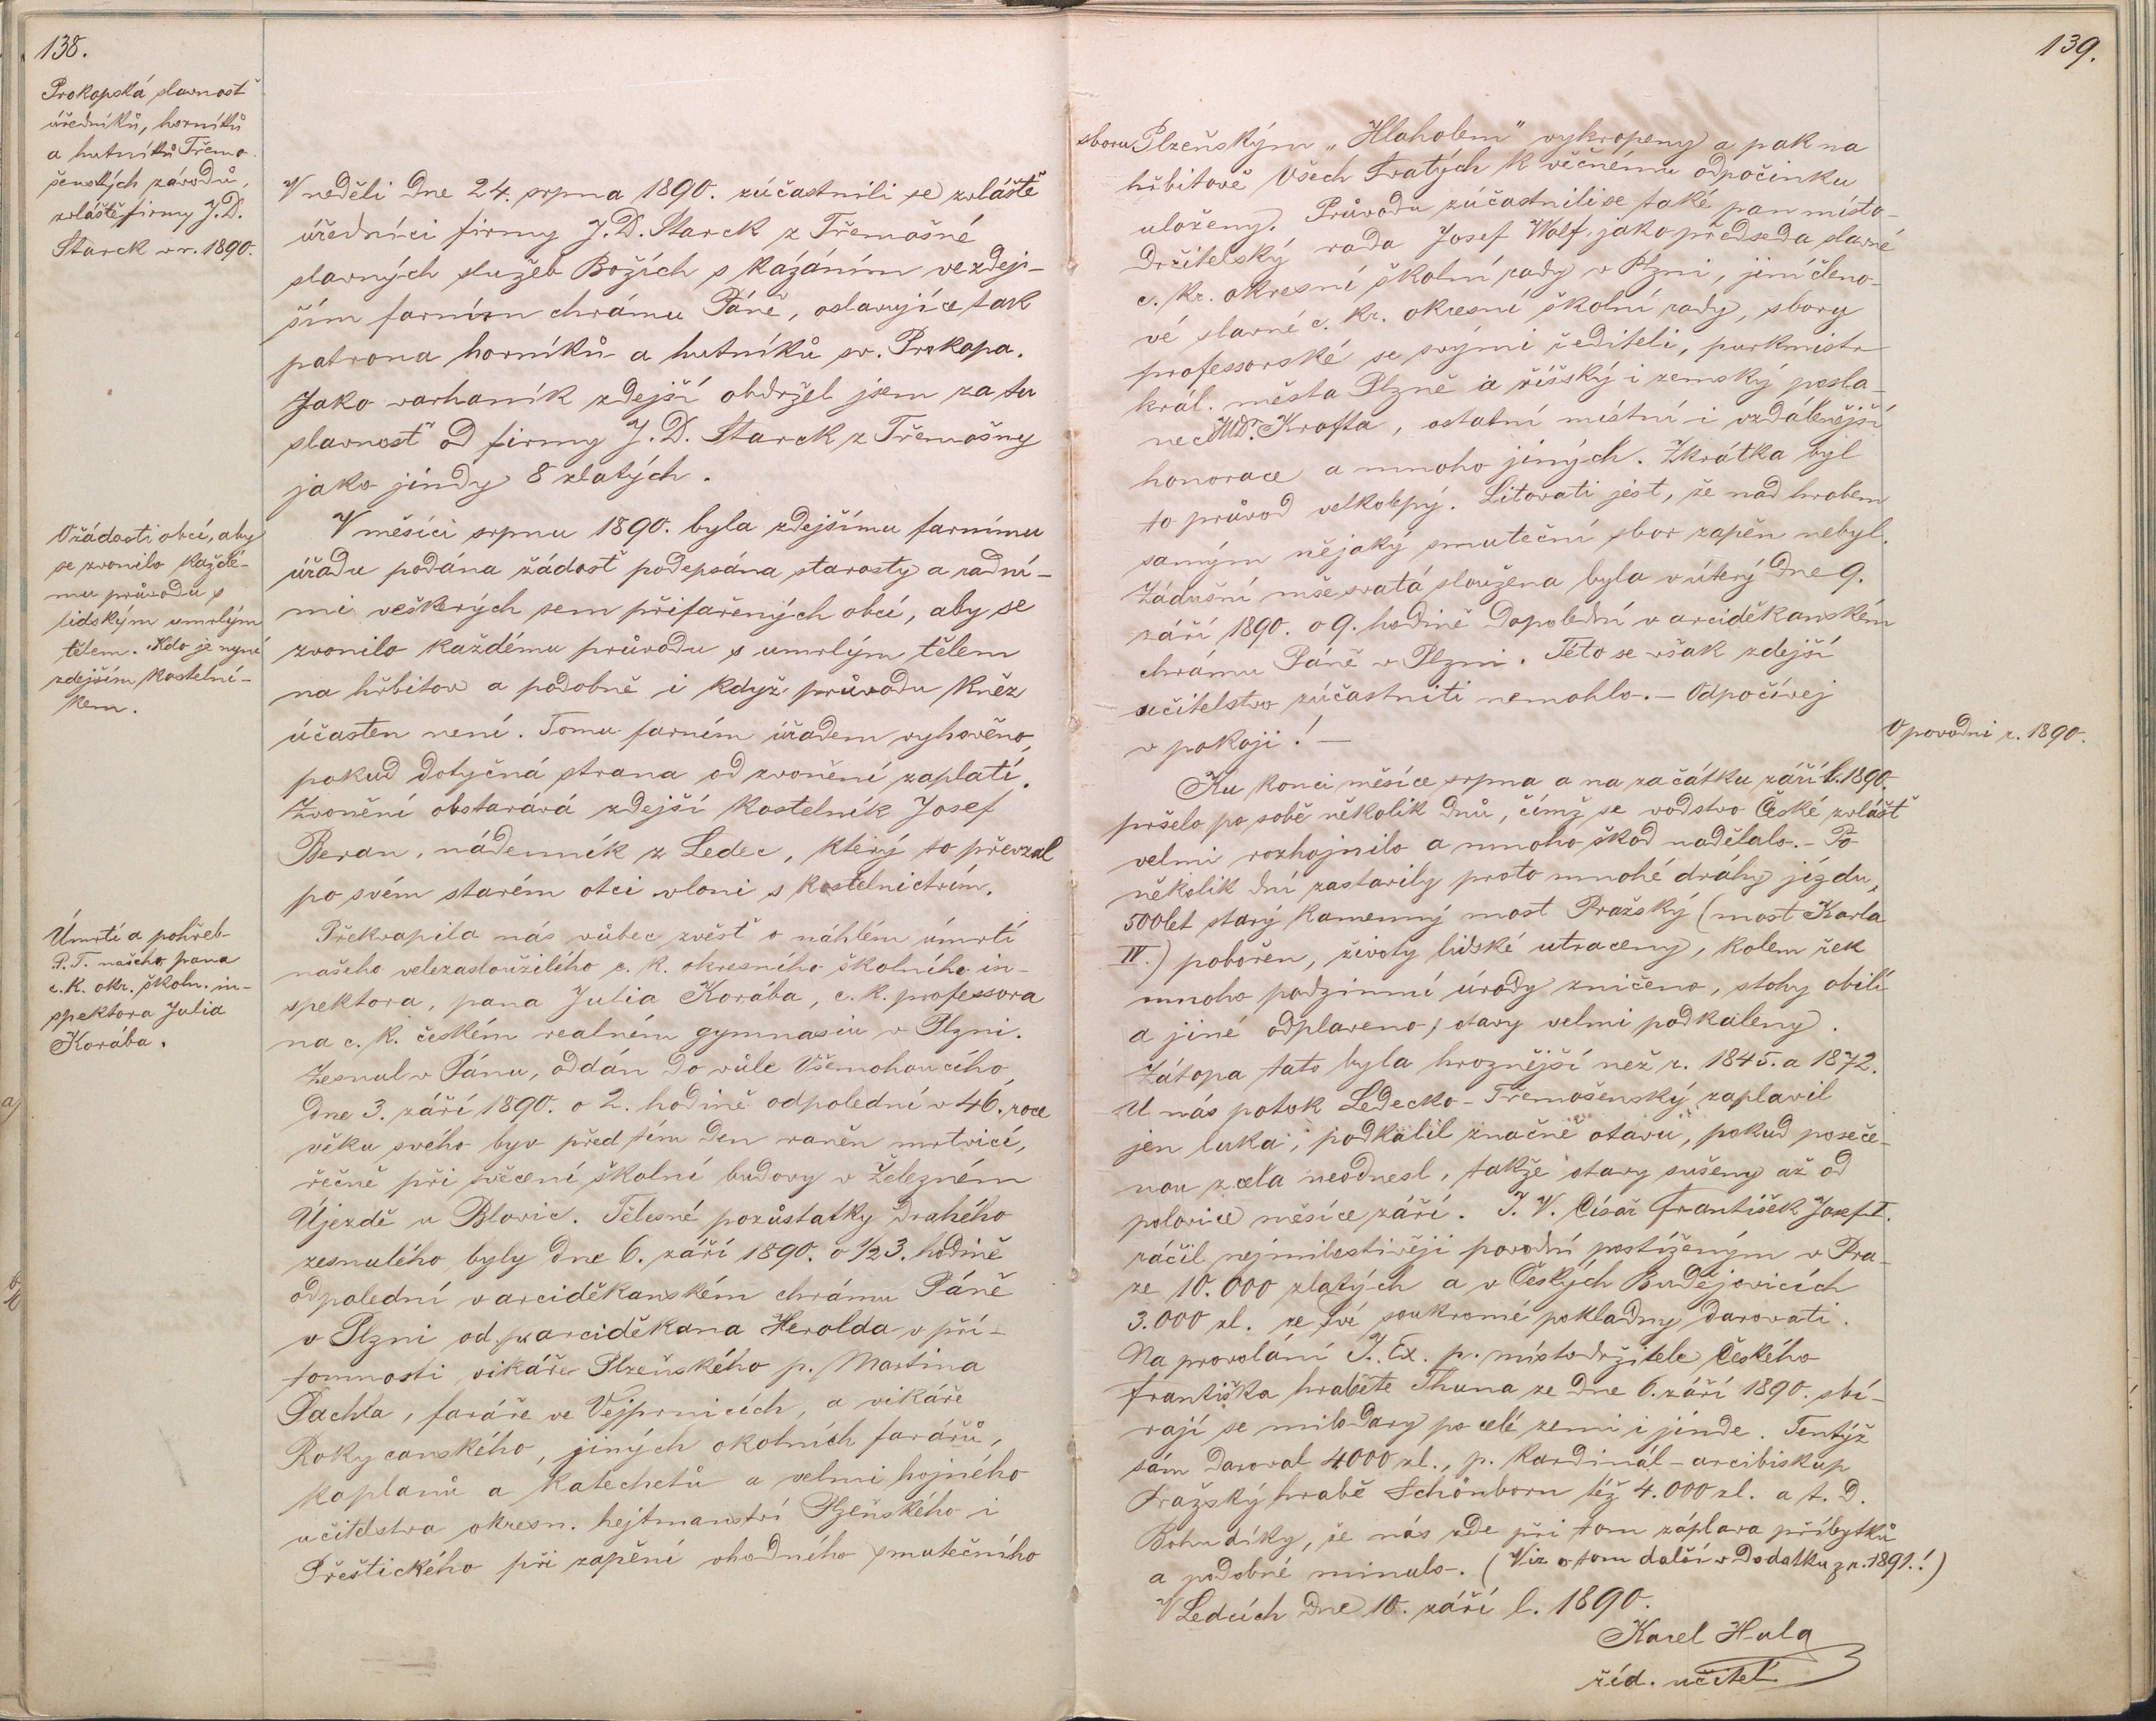 138.
Prokopská slavnosť
úředníků, horníků
a hutníků Třemo-
šenských závodů,
zvláště firmy J. D.
Starck v r. 1890.
V neděli dne 24. srpna 1890. zúčastnili se zvláště
úředníci firmy J. D. Starck z Třemošné
slavných služeb Božích s kázáním ve zdej-
ším farním chrámu Páně, oslavujíce tak
patrona horníků a hutníků sv. Prokopa.
Jako varhaník zdejší obdržel jsem za tu
slavnosť od firmy J. D. Starck z Třemošny
jako jindy 8 zlatých.
O žádosti obcí, aby
se zvonilo každé-
mu průvodu s
lidským umrlým
tělem. Kdo je nyní
zdejším kostelní-
kem.
V měsíci srpnu 1890. byla zdejšímu farnímu
úřadu podána žádosť podepsána starosty a radní-
mi veškerých sem přifařených obcí, aby se
zvonilo každému průvodu s umrlým tělem
na hřbitov a podobně i když průvodu kněz
účasten není. Tomu farním úřadem vyhověno,
pokud dotyčná strana od zvonění zaplatí.
Zvonění obstarává zdejší kostelník Josef
Beran, nádenník z Ledec, který to převzal
po svém starém otci vloni s kostelnictvím.
Úmrtí a pohřeb
P. T. našeho pana
c. k. okr. školn. in-
spektora Julia
Korába.
Překvapila nás vůbec zvěsť o náhlém úmrtí
našeho velezasloužilého c. k. okresního školního in-
spektora, pana Julia Korába, c. k. professora
na c. k. českém realném gymnasiu v Plzni.
Zesnul v Pánu, oddán do vůle Všemohoucího,
dne 3. září 1890. o 2. hodině odpolední v 46. roce
věku svého byv před tím den raněn mrtvicí,
řečně při svěcení školní budovy v Železném
Újezdě u Blovic. Tělesné pozůstatky drahého
zesnulého byly dne 6. září 1890. o 1/2 3. hodině
odpolední v arciděkanském chrámu Páně
v Plzni od p. arciděkana Herolda v pří-
tomnosti vikáře Plzeňského p. Martina
Pachta, faráře ve Vejprnicích, a vikáře
Rokycanského, jiných okolních farářů,
kaplanů a katechetů a velmi hojného
učitelstva okresn. hejtmanství Plzeňského i
Přeštického při zapění vhodného smutečního
139.
sboru Plzeňským „Hlaholem" vykropeny a pak na
hřbitově Všech Svatých k věčnému odpočinku
uloženy. Průvodu zúčastnili se také pan místo-
držitelský rada Josef Wolf, jako předseda slavné
c. kr. okresní školní rady v Plzni, jiní členo-
vé slavné c. kr. okresní školní rady, sbory
professorské se svými řediteli, purkmistr
král. města Plzně a říšský i zemský posla-
nec JUDr. Krofta, ostatní místní i vzdálenější
honorace a mnoho jiných. Zkrátka byl
to průvod velkolepý. Litovati jest, že nad hrobem
samým nějaký smuteční sbor zapěn nebyl.
Zádušní mše svatá sloužena byla v úterý dne 9.
září 1890. o 9. hodině dopolední v arciděkanském
chrámu Páně v Plzni. Této se však zdejší
učitelstvo zúčastniti nemohlo. – Odpočívej
v pokoji! –
O povodni r. 1890.
Ku konci měsíce srpna a na začátku září l. 1890.
pršelo po sobě několik dnů, čímž se vodstvo České zvlášť
velmi rozhojnilo a mnoho škod nadělalo. – Po
několik dní zastavily proto mnohé dráhy jízdu,
500 let starý kamenný most Pražský (most Karla
IV.) pobořen, životy lidské utraceny, kolem řek
mnoho podzimní úrody zničeno, stohy obilí
a jiné odplaveno, otavy velmi podkaleny.
Zátopa tato byla hroznější než r. 1845. a 1872.
U nás potok Ledecko-Třemošenský zaplavil
jen luka, podkalil značně otavu, pokud poseče-
nou zcela neodnesl, takže otavy sušeny až od
polovice měsíce září. J. V. Císař František Josef I.
ráčil nejmilostivěji povodní postiženým v Pra-
ze 10.000 zlatých a v Českých Budějovicích
3.000 zl. ze své soukromé pokladny darovati.
Na provolání J. Ex. p. místodržitele Českého
Františka hraběte Thuna ze dne 6. září 1890. sbí-
rají se milodary po celé zemi i jinde. Tentýž
sám daroval 4000 zl., p. kardinál-arcibiskup
Pražský hrabě Schönborn též 4.000 zl. a t. d.
Bohu díky, že nás zde při tom záplava příbytků
a podobné minulo. (Viz o tom další v Dodatku z r. 1891.!)
V Ledcích dne 10. září l. 1890.
Karel Hula
říd. učitel